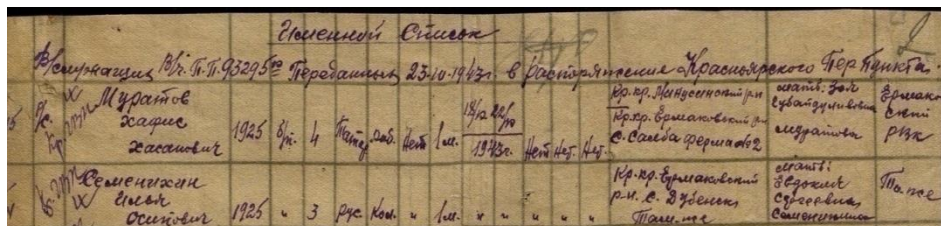 Именной Список
2
В/служащих В/ч. П.П. 93295 Переданных 23-10-1943г. в распоряжение Красноярского Пер. Пункта.
Муратов Хафис Хасанович 1925 б/п. 4 Татар. раб. Нет 1м. 1943г. Нет Нет. Нет. Кр. кр. Минусинский р-н Кр. кр. Ермаковский р-н с. Салба ферма №2 мать: Муратова Ермаковский РВК
Семенихин Илья Осипович 1925 " 3 рус. Кол. " 1м. " " " " " Кр. кр. Ермаковский р-н. с. Дубенск Там-же мать: Евдокия Сергеевна Семенихина Та.же